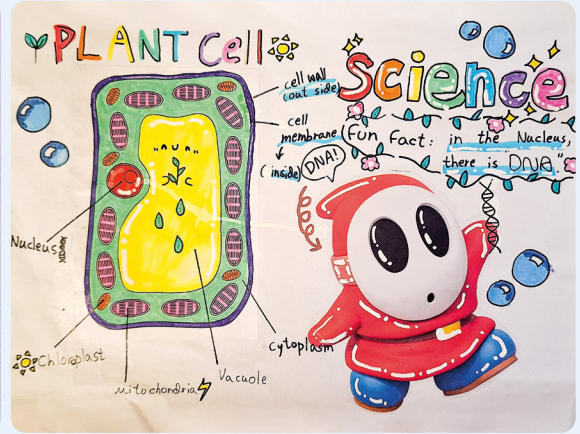 PLANT Cell
Science
cell wall
(out side)
cell
membrane
(inside)
DNA!
(Fun Fact: in the Nucleus,
there is "DNA."
Nucleus
Chloroplast
Mitochondria
Vacuole
Cytoplasm